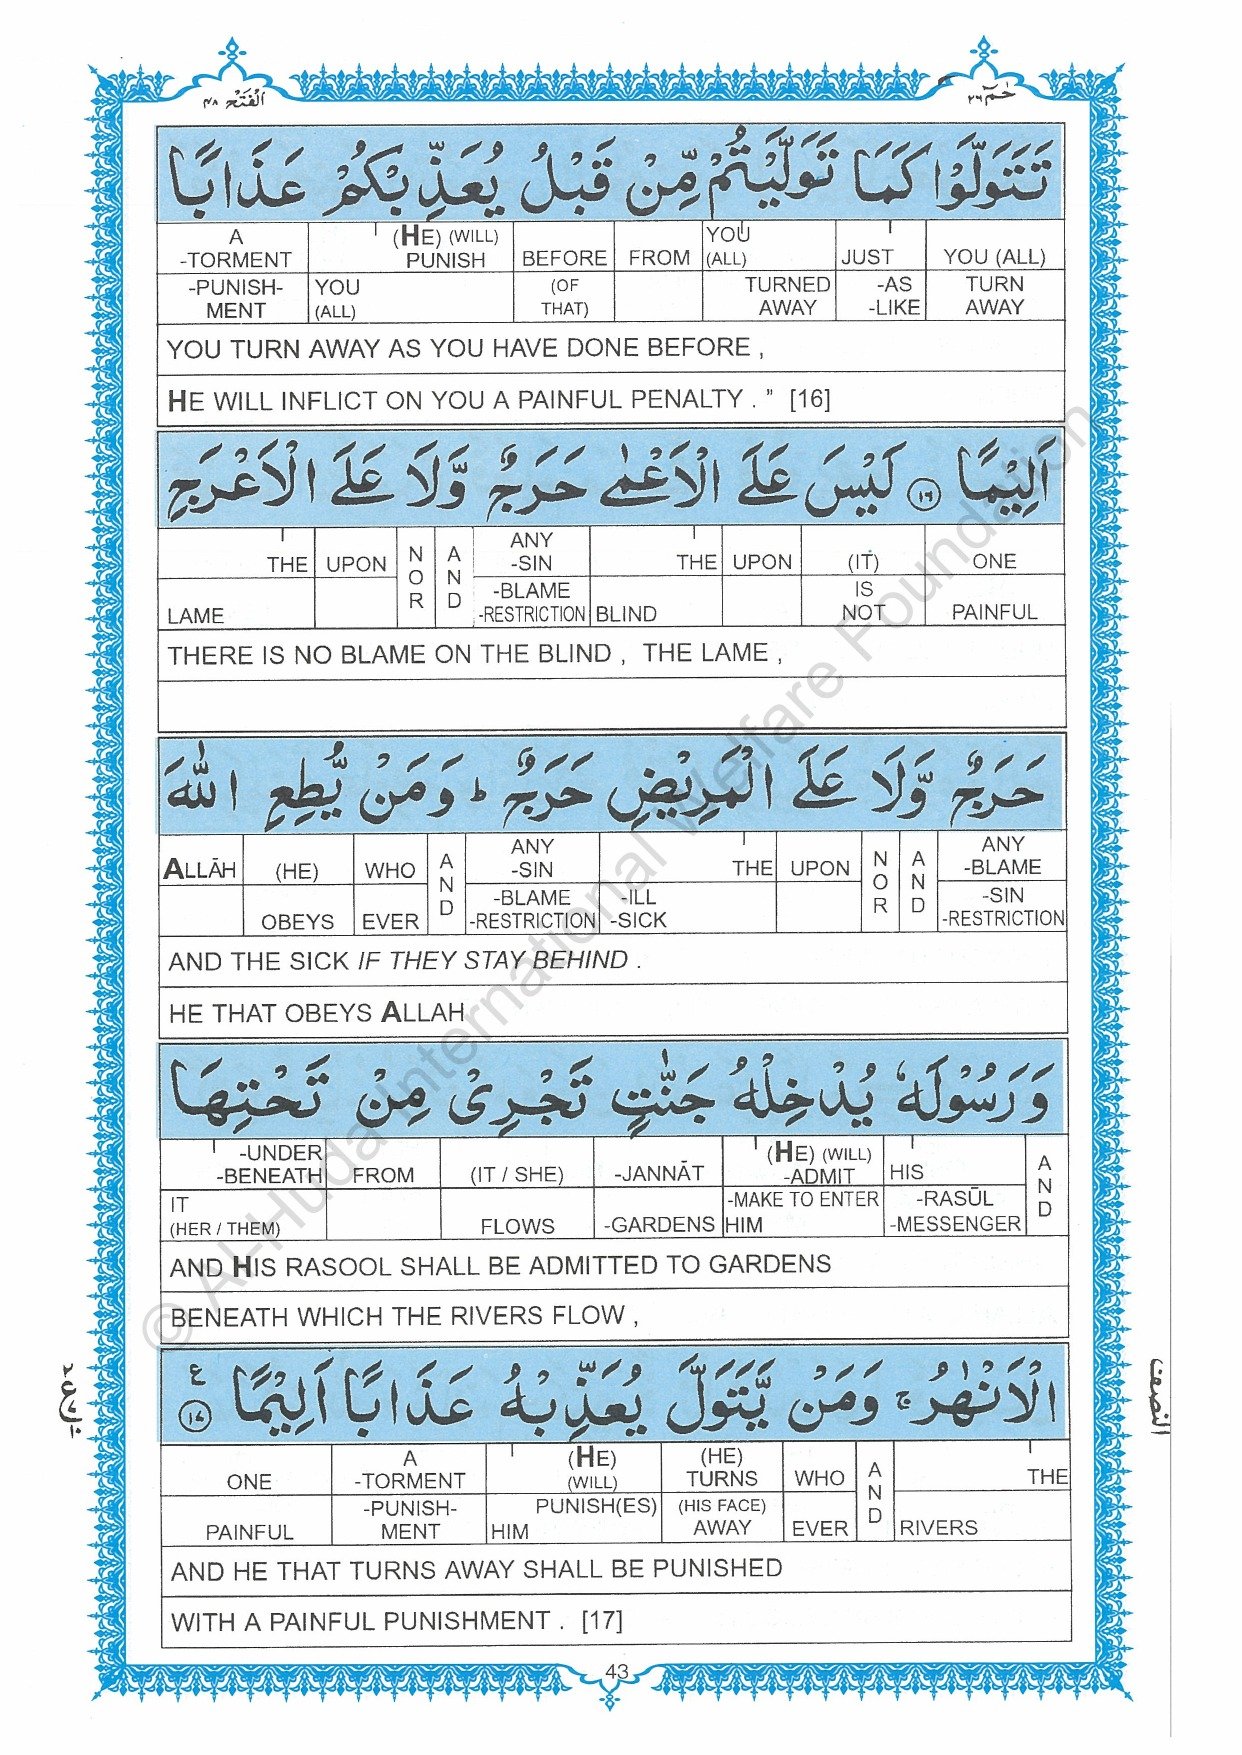 الفتح ٤٨
حٰمٓ ٢٦
تَتَوَلَّوْا كَمَا تَوَلَّيْتُمْ مِّنْ قَبْلُ يُعَذِّبْكُمْ عَذَابًا
A (HE) (WILL) YOU
-TORMENT PUNISH BEFORE FROM (ALL) JUST YOU (ALL)
-PUNISH- YOU (OF TURNED -AS TURN
MENT (ALL) THAT) AWAY -LIKE AWAY
YOU TURN AWAY AS YOU HAVE DONE BEFORE ,
HE WILL INFLICT ON YOU A PAINFUL PENALTY . ” [16]
اَلِيْمًا ١٦ لَيْسَ عَلَى الْاَعْمٰى حَرَجٌ وَّلَا عَلَى الْاَعْرَجِ
THE UPON NOR AND ANY -SIN THE UPON (IT) ONE
LAME -BLAME -RESTRICTION BLIND IS NOT PAINFUL
THERE IS NO BLAME ON THE BLIND , THE LAME ,
حَرَجٌ وَّلَا عَلَى الْمَرِيْضِ حَرَجٌ ؕ وَمَنْ يُّطِعِ اللّٰهَ
ALLĀH (HE) WHO AND ANY -SIN THE UPON NOR AND ANY -BLAME
OBEYS EVER -BLAME -RESTRICTION -ILL -SICK -SIN -RESTRICTION
AND THE SICK IF THEY STAY BEHIND .
HE THAT OBEYS ALLAH
وَرَسُوْلَهٗ يُدْخِلْهُ جَنّٰتٍ تَجْرِيْ مِنْ تَحْتِهَا
-UNDER (HE) (WILL)
-BENEATH FROM (IT / SHE) -JANNĀT -ADMIT HIS AND
IT -MAKE TO ENTER -RASŪL
(HER / THEM) FLOWS -GARDENS HIM -MESSENGER
AND HIS RASOOL SHALL BE ADMITTED TO GARDENS
BENEATH WHICH THE RIVERS FLOW ,
الْاَنْهٰرُ ۚ وَمَنْ يَّتَوَلَّ يُعَذِّبْهُ عَذَابًا اَلِيْمًا ١٧ ع
A (HE) (HE)
ONE -TORMENT (WILL) TURNS WHO AND THE
-PUNISH- PUNISH(ES) (HIS FACE)
PAINFUL MENT HIM AWAY EVER RIVERS
AND HE THAT TURNS AWAY SHALL BE PUNISHED
WITH A PAINFUL PUNISHMENT . [17]
43
النصف
© Al-Huda International Welfare Foundation